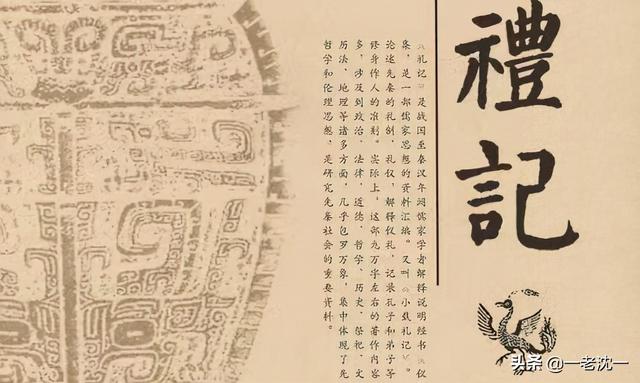 禮記
《礼记》是战国至秦汉年间儒家学者解释说明经书《仪
集,是一部儒家思想的资料汇编。又叫《小戴礼记》。
论述先秦的礼制、礼仪,解释仪礼,记录孔子和弟子等
修身作人的准则。实际上,这部九万字左右的著作内容
多,涉及到政治、法律、道德、哲学、历史、祭祀、文
历法、地理等诸多方面,几乎包罗万象,集中体现了先
哲学和伦理思想,是研究先秦社会的重要资料。
头条 @一老沈一